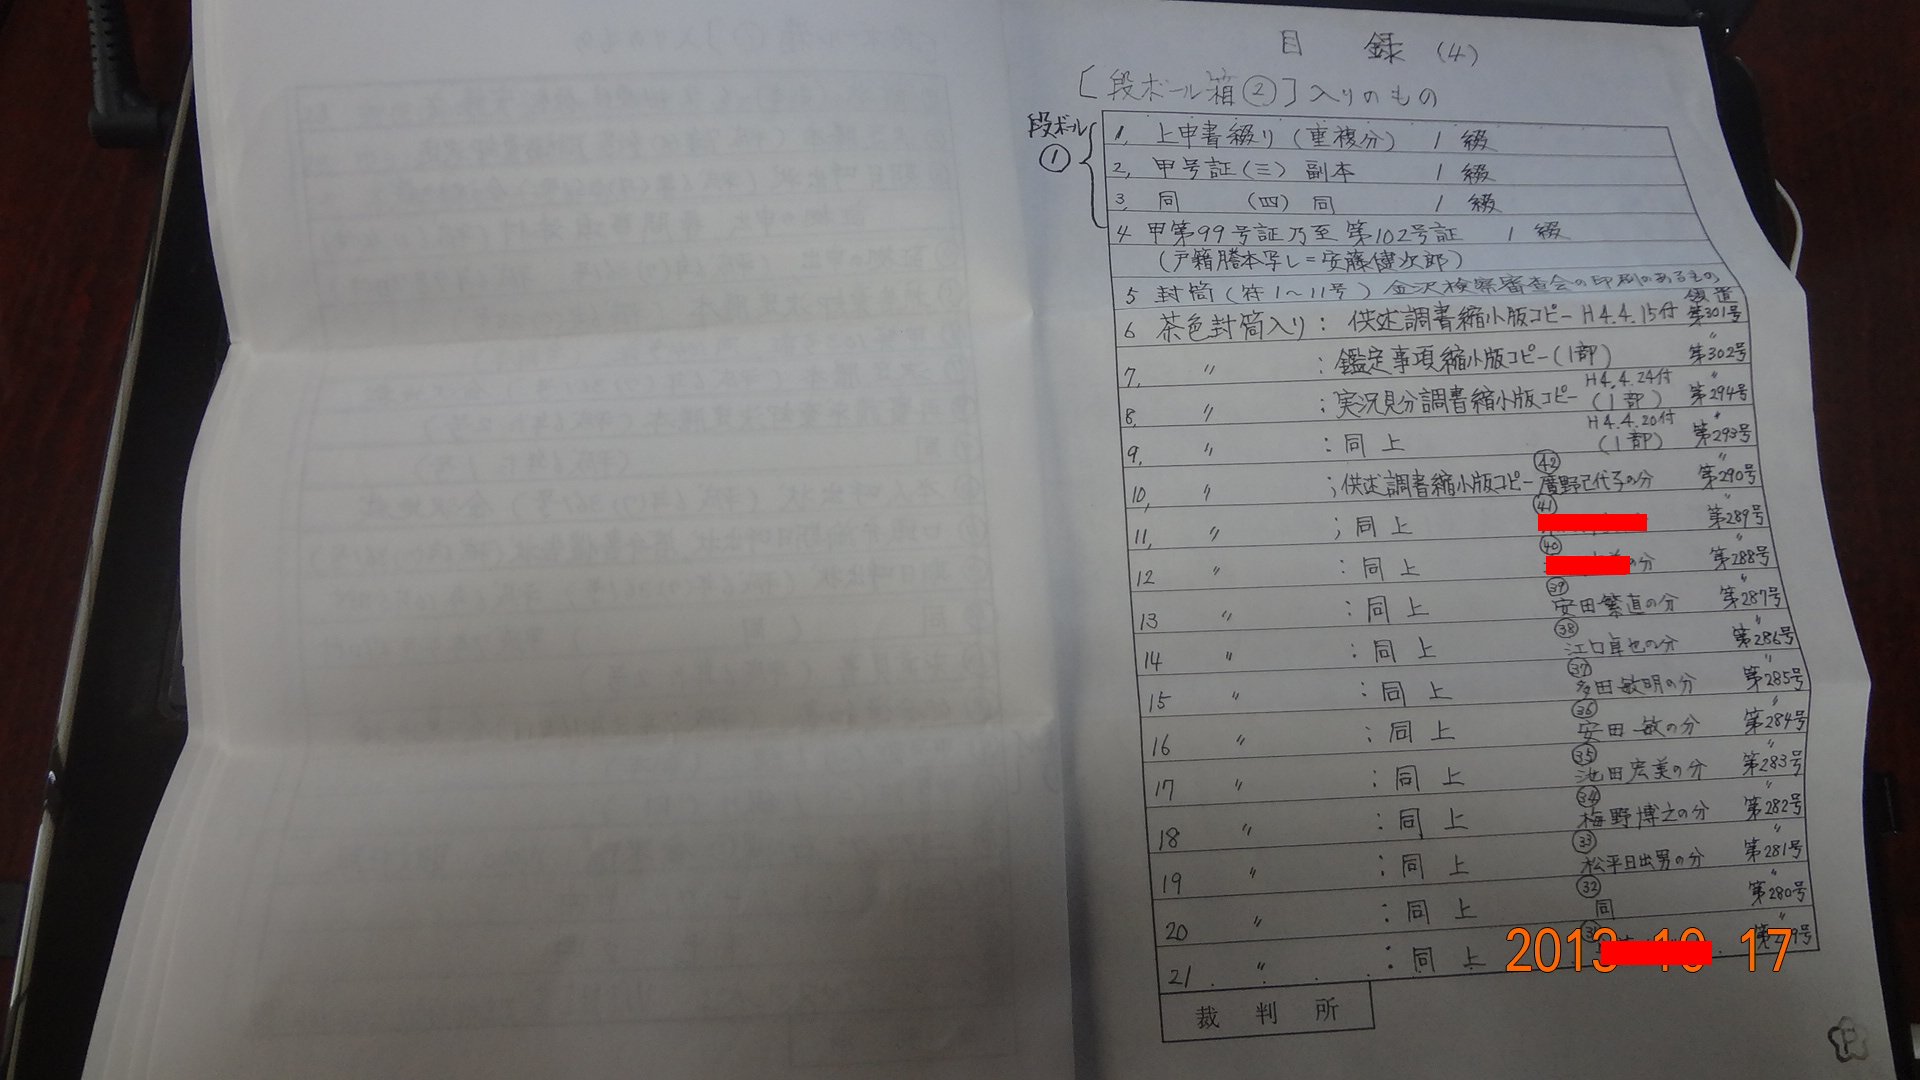 目　録 (4)
[段ボール箱②] 入りのもの
段ボール
①
1, 上申書綴り (重複分) 1 綴
2, 甲号証 (三) 副本 1 綴
3, 同 (四) 同 1 綴
4 甲第99号証乃至第102号証 1 綴
(戸籍謄本写し=安藤健次郎)
5 封筒 (符1～11号) 金沢検察審査会の印刷のあるもの
6 茶色封筒入り: 供述調書縮小版コピー H4.4.15付 第301号
7, 〃 : 鑑定事項縮小版コピー (1部) 第302号
8, 〃 : 実況見分調書縮小版コピー H4.4.24付 (1部) 〃 第294号
9, 〃 : 同上 H4.4.20付 (1部) 〃 第293号
10, 〃 ; 供述調書縮小版コピー ㊷ 廣野己代子の分 〃 第290号
11, 〃 ; 同上 ㊶ 〃 第289号
12 〃 : 同上 ㊵ の分 〃 第288号
13 〃 : 同上 ㊴ 安田繁直の分 〃 第287号
14 〃 : 同上 ㊳ 江口卓也の分 〃 第286号
15 〃 : 同上 ㊲ 多田敏明の分 〃 第285号
16 〃 : 同上 ㊱ 安田敏の分 〃 第284号
17 〃 : 同上 ㉟ 池田宏美の分 〃 第283号
18 〃 : 同上 ㉞ 梅野博之の分 〃 第282号
19 〃 : 同上 ㉝ 松平日出男の分 〃 第281号
20 〃 : 同上 ㉜ 同 〃 第280号
21. 〃 : 同上 〃
裁判所
2013 10 17